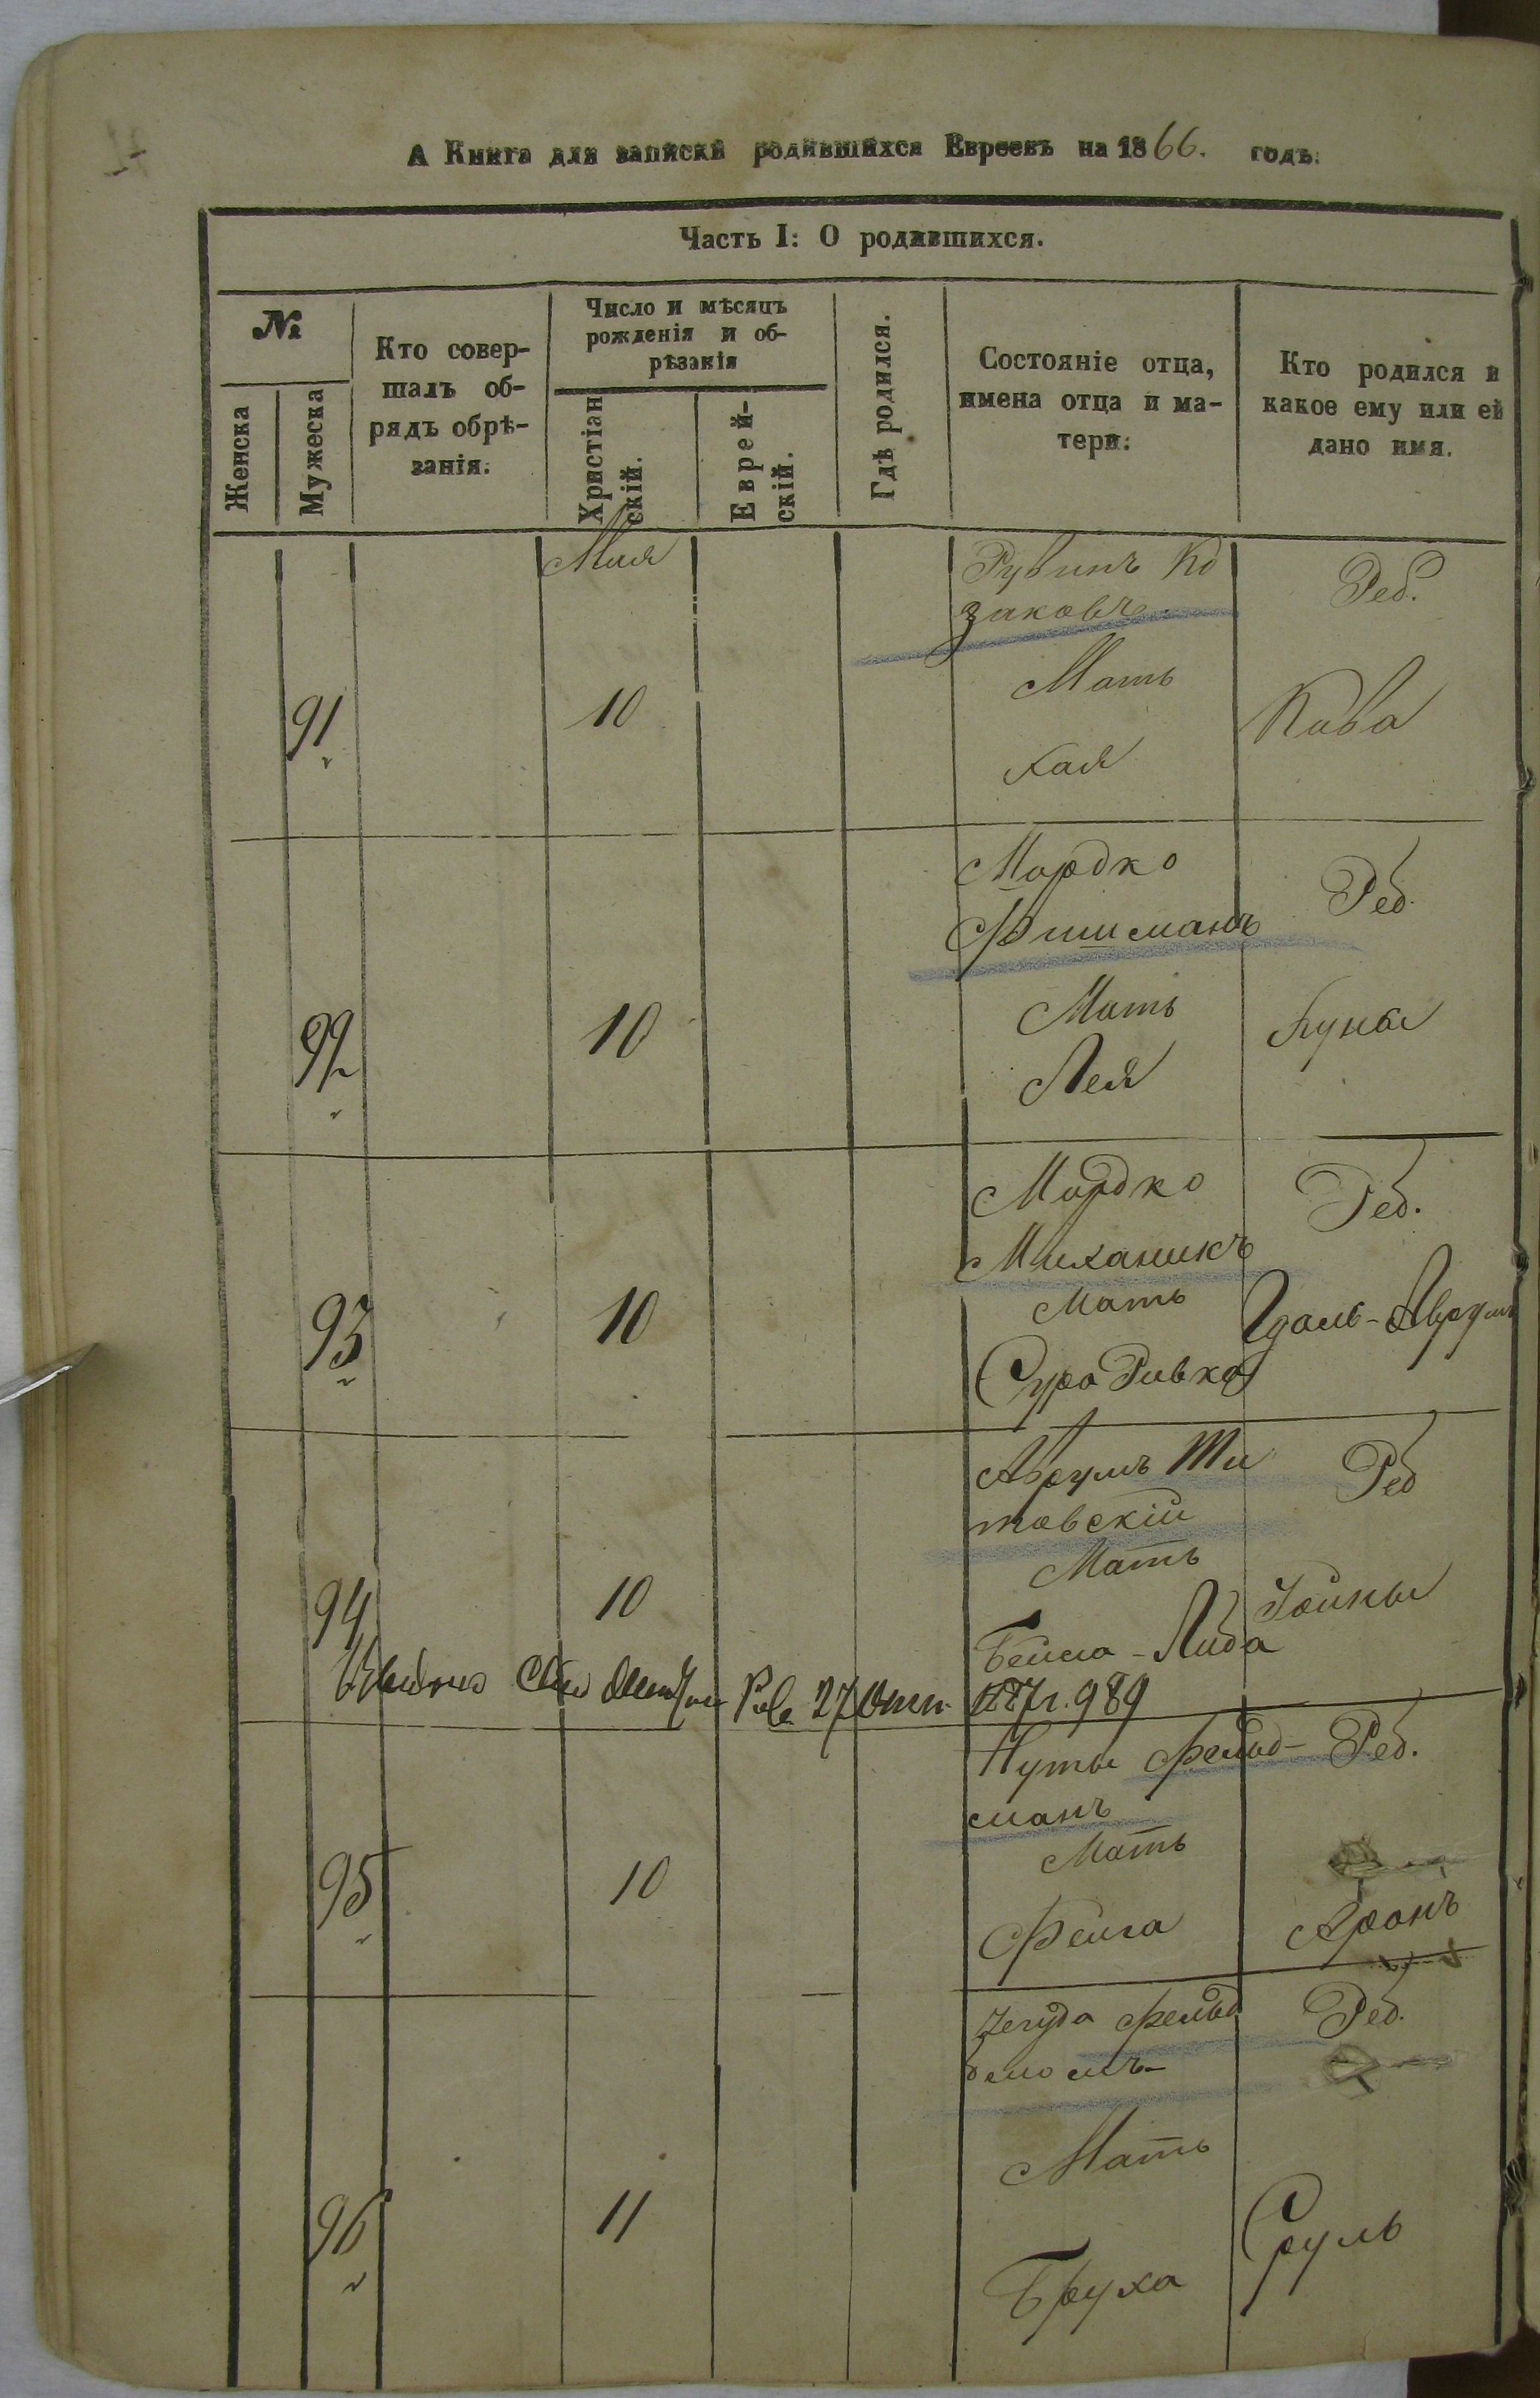 А Книга для записки родившихся Евреевъ на 1866. годъ.
Часть I: О родившихся.
№
Женска
Мужеска
Кто совер-
шалъ об-
рядъ обрѣ-
занія.
Число и мѣсяцъ
рожденія и об-
рѣзанія
Христіан
скій.
Еврей-
скій.
Гдѣ родился.
Состояніе отца,
имена отца и ма-
тери.
Кто родился и
какое ему или ей
дано имя.
Мая
91
10
Рувинъ Ко
заковъ
Мать
Хая
Реб.
Кива
92
10
Мордко
Фишманъ
Мать
Лея
Реб.
93
10
Мордко
Миханикъ
Мать
Сура Ривка
Реб.
94
10
Аврумъ Ти
товскій
Мать
Бейла-Либа
Реб
27 1887г. 989
95
10
Нуты Фельд-
манъ
Мать
Фейга
Реб.
Аронъ
96
11
Мать
Бруха
Реб.
Сруль